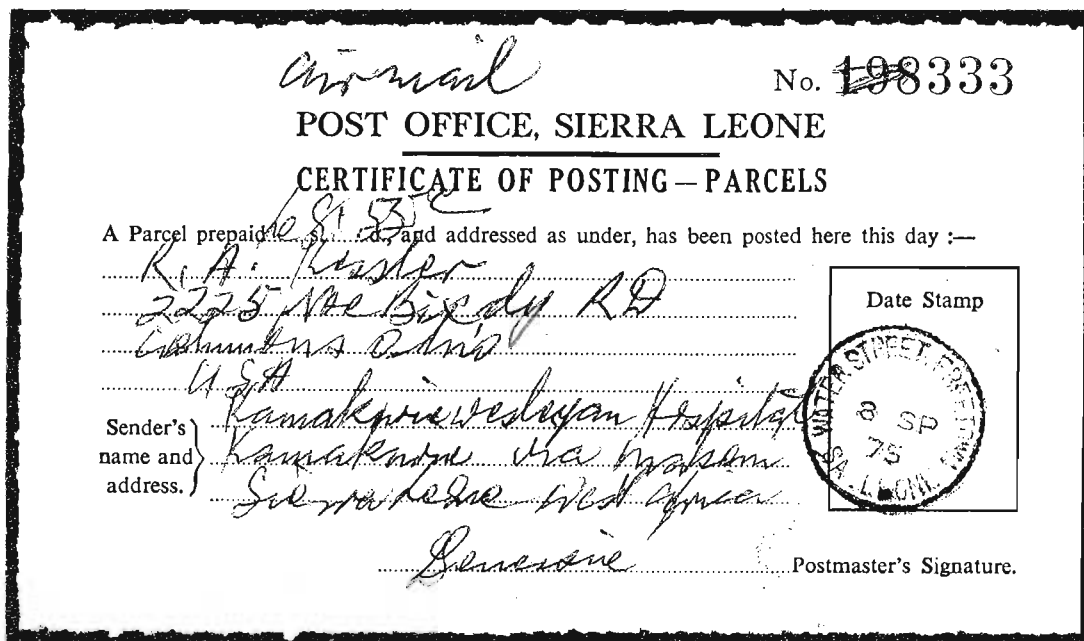 airmail
No. 198333
POST OFFICE, SIERRA LEONE
CERTIFICATE OF POSTING — PARCELS
A Parcel prepaid Le 81 55c s. d., and addressed as under, has been posted here this day :—
R. A.
2225 RD
Columbus Ohio
USA
Sender's name and address.
Kamakwie Wesleyan Hospital
Kamakwie via
Sierra Leone West Africa
Date Stamp
WATER STREET, FREETOWN
8 SP
75
SA. LEONE
Postmaster's Signature.